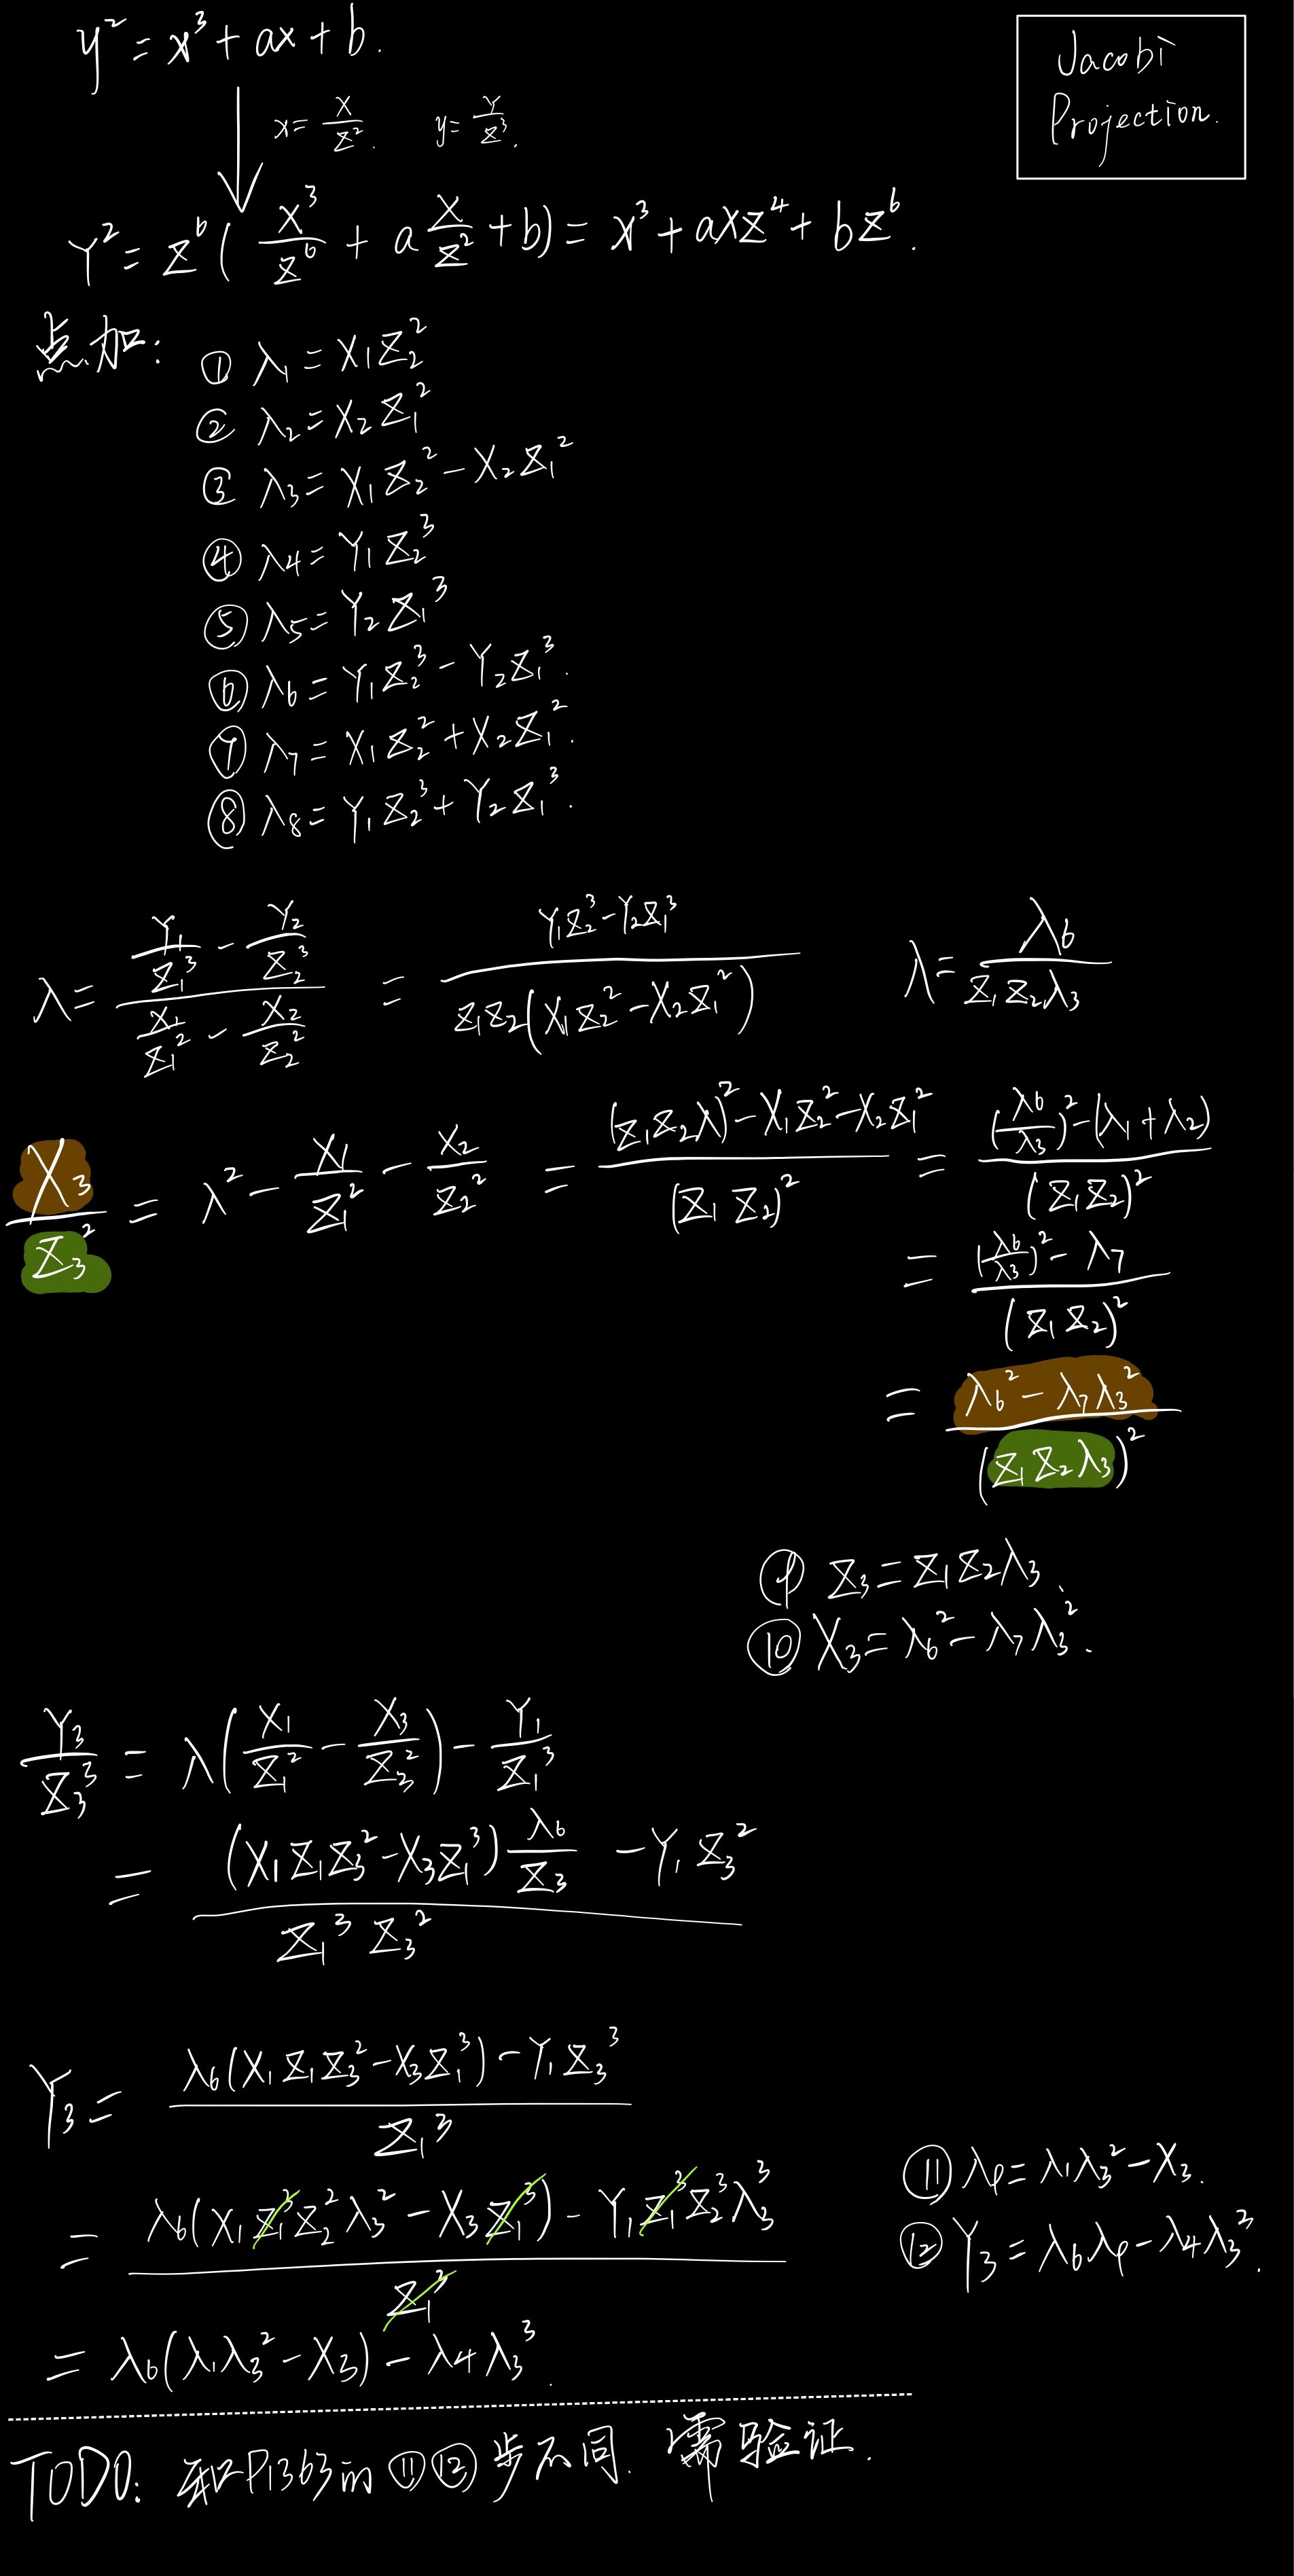 y² = x³ + ax + b.
Jacobi
Projection.
x = X/Z². y = Y/Z³.
Y² = Z⁶(X³/Z⁶ + a X/Z² + b) = X³ + aXZ⁴ + bZ⁶.
点加:
① λ₁ = X₁Z₂²
② λ₂ = X₂Z₁²
③ λ₃ = X₁Z₂² - X₂Z₁²
④ λ₄ = Y₁Z₂³
⑤ λ₅ = Y₂Z₁³
⑥ λ₆ = Y₁Z₂³ - Y₂Z₁³.
⑦ λ₇ = X₁Z₂² + X₂Z₁².
⑧ λ₈ = Y₁Z₂³ + Y₂Z₁³.
λ = (Y₁/Z₁³ - Y₂/Z₂³)/(X₁/Z₁² - X₂/Z₂²) = (Y₁Z₂³ - Y₂Z₁³)/(Z₁Z₂(X₁Z₂² - X₂Z₁²)) λ = λ₆/(Z₁Z₂λ₃)
X₃/Z₃² = λ² - X₁/Z₁² - X₂/Z₂² = ((Z₁Z₂λ)² - X₁Z₂² - X₂Z₁²)/(Z₁Z₂)² = ((λ₆/λ₃)² - (λ₁ + λ₂))/(Z₁Z₂)²
= ((λ₆/λ₃)² - λ₇)/(Z₁Z₂)²
= (λ₆² - λ₇λ₃²)/(Z₁Z₂λ₃)²
⑨ Z₃ = Z₁Z₂λ₃、
⑩ X₃ = λ₆² - λ₇λ₃².
Y₃/Z₃³ = λ(X₁/Z₁² - X₃/Z₃²) - Y₁/Z₁³
= ((X₁Z₁Z₃² - X₃Z₁³) λ₆/Z₃ - Y₁Z₃²)/(Z₁³Z₃²)
Y₃ = (λ₆(X₁Z₁Z₃² - X₃Z₁³) - Y₁Z₃³)/Z₁³
= (λ₆(X₁Z₁³Z₂²λ₃² - X₃Z₁³) - Y₁Z₁³Z₂³λ₃³)/Z₁³
= λ₆(λ₁λ₃² - X₃) - λ₄λ₃³.
⑪ λ₉ = λ₁λ₃² - X₃.
⑫ Y₃ = λ₆λ₉ - λ₄λ₃³.
TODO: 和P1363的⑪⑫步不同. 需验证.